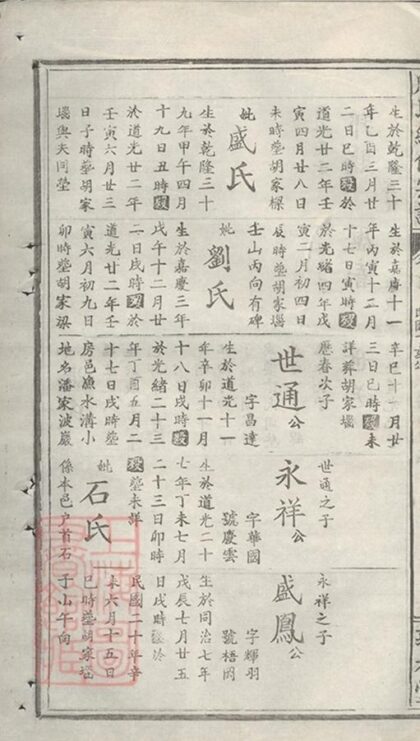 生於乾隆三十
年乙酉三月廿
二日巳時歿於
道光廿二年壬
寅四月廿八日
未時塟胡家樑
妣盛氏
生於乾隆三十
九年甲午四月
十九日丑時歿
於道光廿二年
壬寅六月廿三
日子時塟胡家
塆與夫同塋
生於嘉慶十一
年丙寅十二月
十七日寅時歿
於光緒四年戊
寅二月初四日
辰時塟胡家塆
壬山丙向有碑
妣劉氏
生於嘉慶三年
戊午十二月廿
二日戌時歿於
道光廿二年壬
寅六月初九日
卯時塟胡家梁
辛巳十一月廿
三日巳時歿未
詳葬胡家塆
應春次子
世通公
字昌達
生於道光十一
年辛卯十一月
十八日戌時歿
於光緒二十三
年丁酉五月二
十七日戌時塟
房邑漁水溝小
地名潘家波巖
世通之子
永祥公
字華國
號慶雲
生於道光二十
七年丁未七月
二十三日卯時
歿塟未詳
妣石氏
係本邑户首石
永祥之子
盛鳳公
字輝羽
號梧岡
生於同治七年
戊辰七月廿五
日戌時歿於
民國二十年辛
未六月十五日
巳時塟胡家塆
子山午向